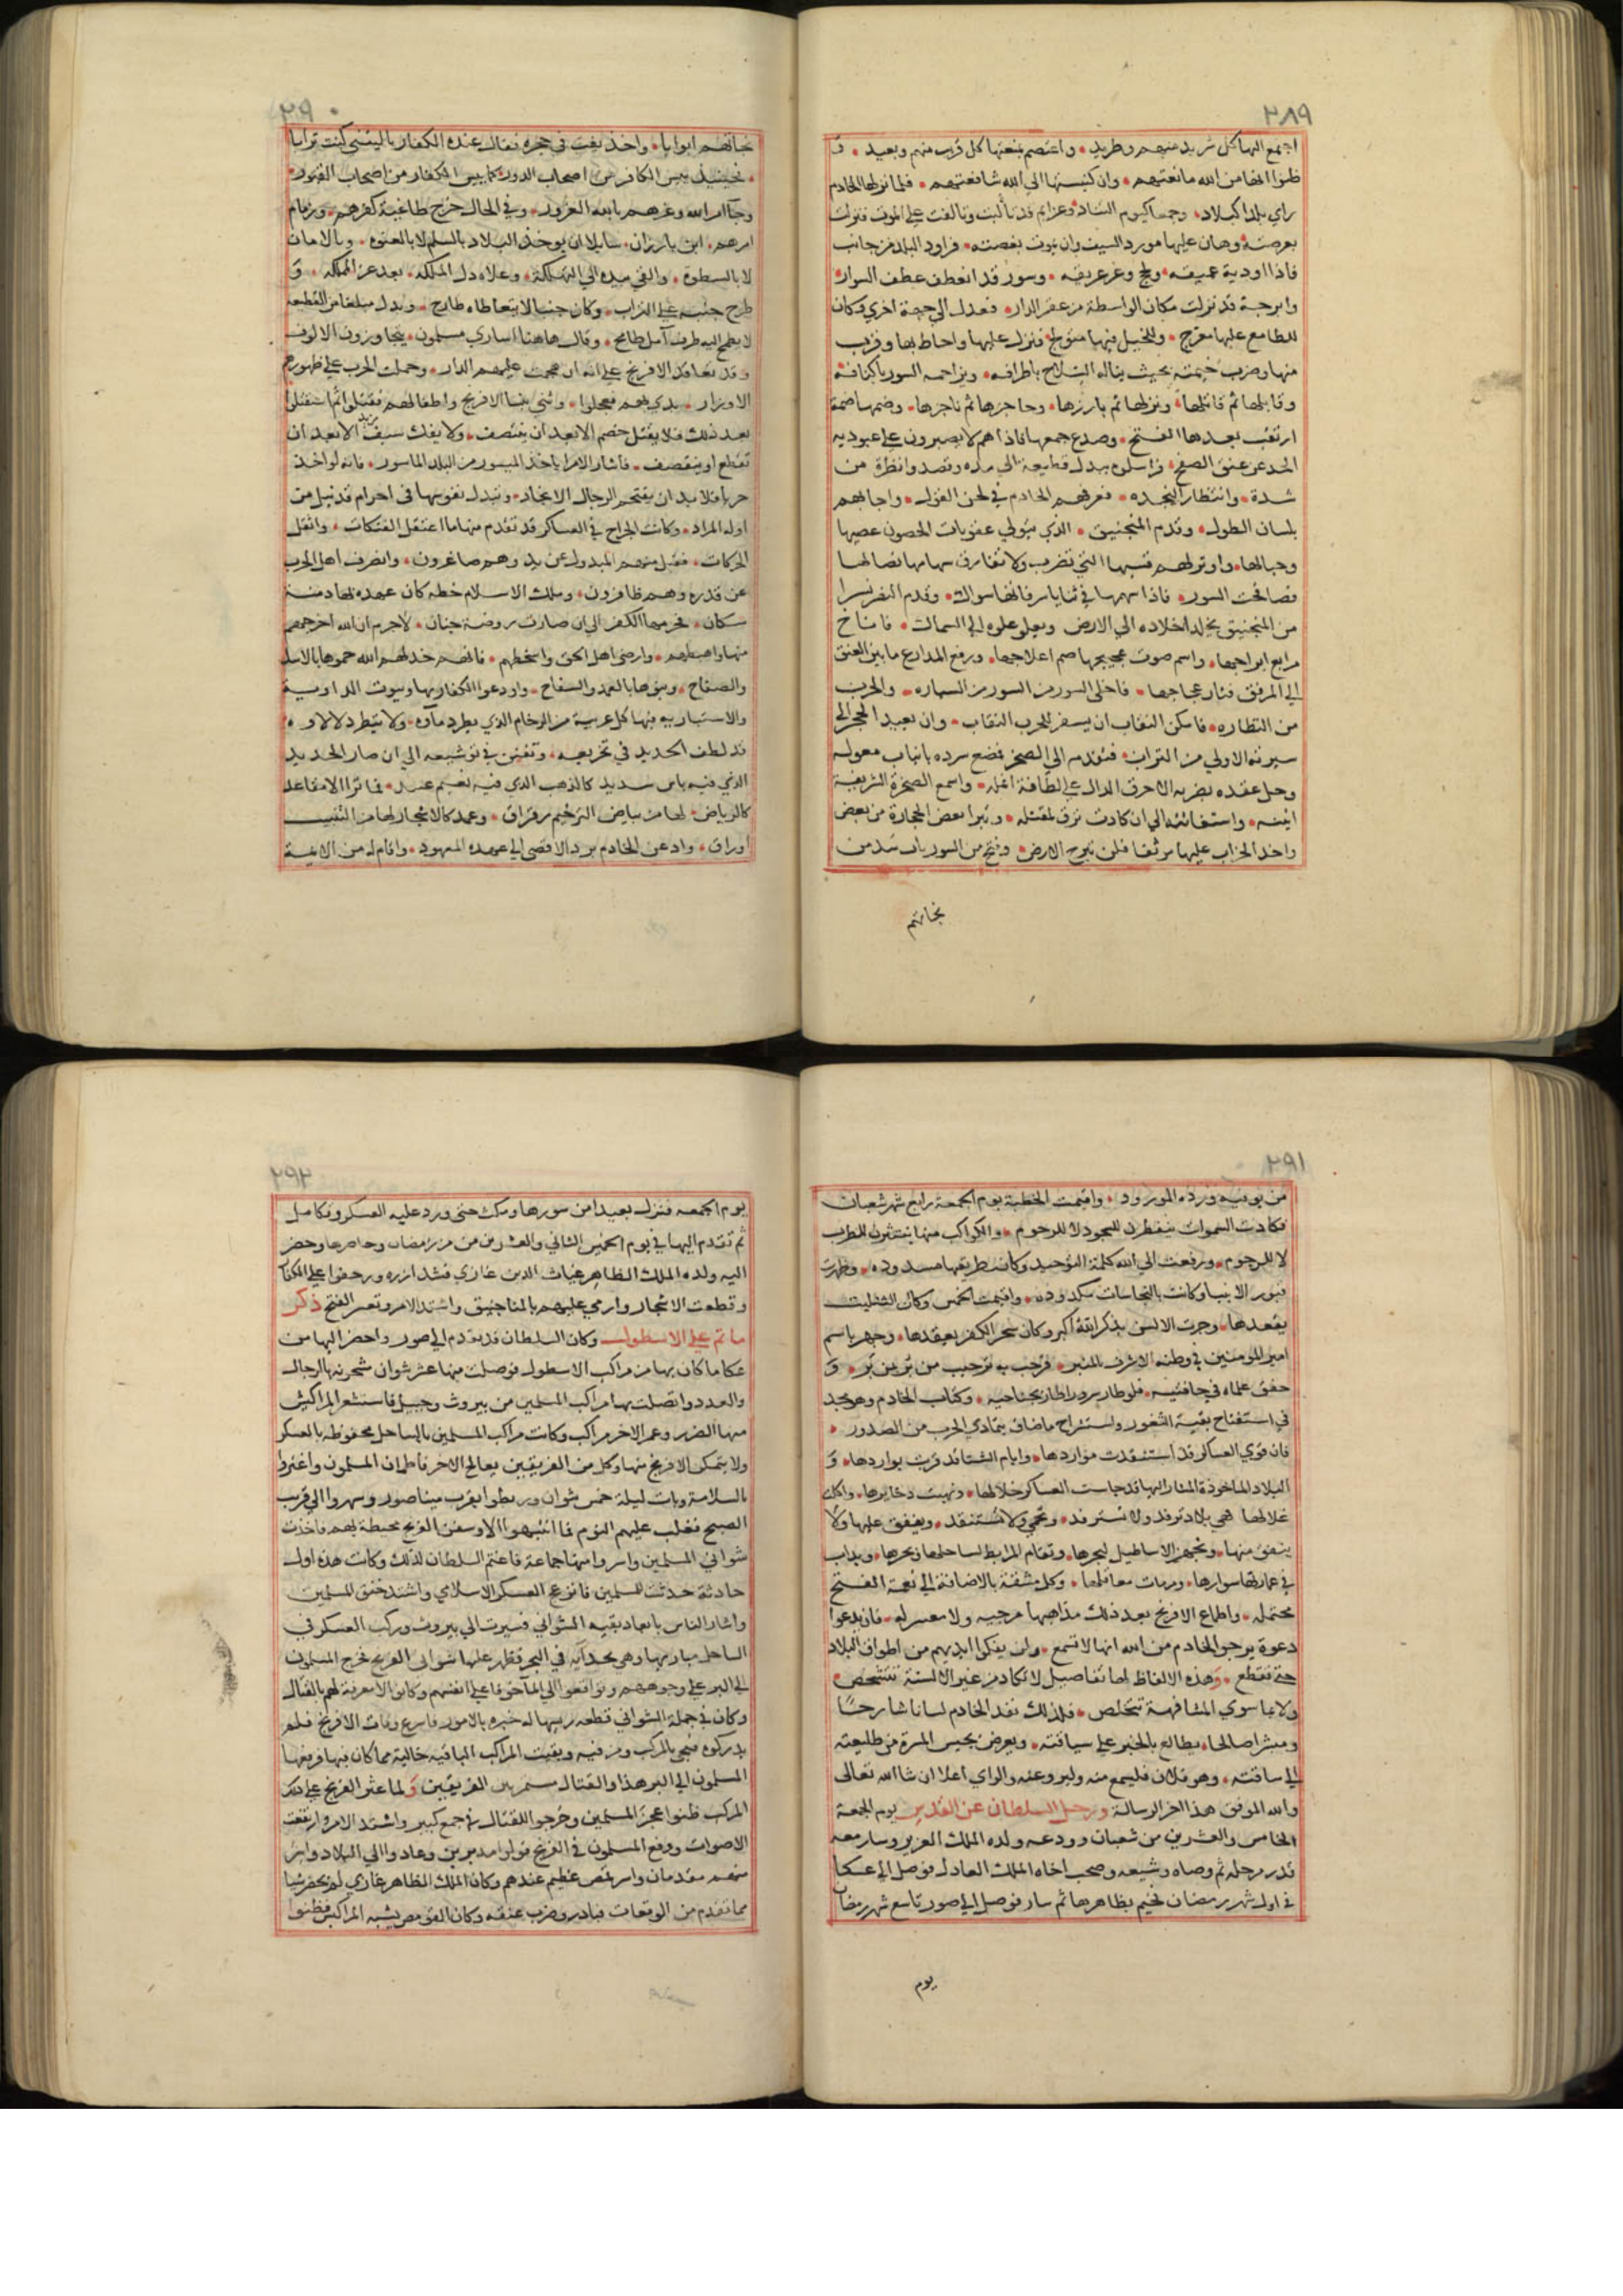 ٢٨٩
اجتمع اليها كل شريد منهم وطريد واعتصم بمنعتها كل قريب منهم وبعيد و
ظنوا انها من الله مانعتهم وان كنيستها الي الله شافعتهم فلما نزلها الخادم
راي بلدا كبلاد وجمعا كيوم التناد وعزايم قد تالبت وتالفت علي الموت فنزلت
بعرصته وهان عليها مورد السيف وان تموت بغصته فزاود البلد من جانب
فاذا اودية عميقه ولج وعر عريقه وسور قد انعطف عطف السوار
وابرجة قد نزلت مكان الواسطة من عقر الدار فعدل الي جهة اخري وكان
للطامع عليها معرج وللخيل فيها متولج فنزل عليها واحاط بها وقرب
منها وضرب خيمته بحيث يناله السلاح باطرافه ويزاحمه السور باكنافه
وقابلها ثم قاتلها ونزلها ثم بارزها وحاجزها ثم ناجزها وضمها ضمة
ارتقب بعدها الفتح وصدع جمعها فاذا هم لا يصبرون علي عبودية
الحد عن عتق الصفح فراسلوه ببذل قطيعة الي مدة وقصدوا نظرة من
شدة وانتظار النجده فعرفهم الخادم في لحن القول واجابهم
بلسان الطول وقدم المنجنيق الذي يتولي عقوبات الحصون عصيها
وحبالها واوتر لهم قسيها التي تضرب ولا تفارق سهامها نصالها
فصافحت السور فاذا سهمها في ثنايا شرفاتها سواك وقدم النصر نسرا
من المنجنيق يخلد اخلاده الي الارض ويعلو علوه الي السماك فشاج
مرابع ابراجها واسمع صوت عجيجها صم اعلاجها ورفع المدارع ما بين العنق
الي المرفق فثار عجاجها فاخلي السور من السور من السياره والحرب
من النظاره فامكن النقاب ان يسفر للحرب النقاب وان يعيد الحجر الي
سيرته الاولي من التراب فتقدم الي الصخر فمضغ سرده بانياب معوله
وحل عقده بضربه الاخرق الدال علي لطافة انمله واسمع الصخرة الشريفة
انينه واستغاثته الي ان كادت ترق لمقتله وتبرا بعض الحجارة من بعض
واخذ الخراب عليها موثقا فلن تبرح الارض وفتح من السور باب سد من
نجاتهم
٢٩٠
نجاتهم ابوابا واخذ يفت في حجره فقال عنده الكفار ياليتني كنت ترابا
فحينيذ ييس الكافر من اصحاب الدور كما ييس الكفار من اصحاب القبور
وجا امر الله وغرهم بالله الغرور وفي الحال خرج طاغية كفرهم وزمام
امرهم ابن بارزان سايلا ان يوخذ البلاد بالسلم لا بالعنوه وبالامان
لا بالسطوة والقي بيده الي التهلكة وعلاه ذل الملكه بعد عز المملكه و
طرح جنبه علي التراب وكان جنبا لا يتعاطاه طارح وبذل مبلغا من القطيعه
لا يطمح اليه طرف آمل طامح وقال هاهنا اساري مسلمون يتجاوزون الالوف
وقد تعاقد الافرنج علي انه ان هجمت عليهم الدار وحملت الحرب علي ظهورهم
الاوزار بدي بهم فعجلوا وثني بنسا الافرنج واطفالهم فقتلوا ثم استقتلوا
بعد ذلك فلا يقتل خصم الا بعد ان ينتصف ولا يفك سيف من يد الا بعد ان
تقطع او ينقصف فاشار الامرا باخذ الميسور من البلد الماسور فانه لو اخذ
حربا فلا بد ان يقتحم الرجال الانجاد وتبذل نفوسها في اخرام قد نيل من
اوله المراد وكانت الجراح في العساكر قد تقدم منها ما اعتقل الفتكات واثقل
الحركات فقبل منهم المبذول عن يد وهم صاغرون وانصرف اهل الحرب
عن قدرة وهم ظافرون وملك الاسلام خطه كان عهده بها دمنة
سكان فخدمها الكفر الي ان صارت روضة جنان لاجرم ان الله اخرجهم
منها واهبطهم وارضي اهل الحق واسخطهم فانهم خذلهم الله حموها بالاسل
والصفاح وبنوها بالعمد والصفاح واودعوا الكنايس بها وبيوت الداوية
والاستباريه فيها كل غريبة من الرخام الذي يطرد ماوه ولا ينطرد لالاوه
قد لطف الحديد في تجزيعه وتفنن في توشيعه الي ان صار الحديد
الذي فيه باس شديد كالذهب الذي فيه نعيم عتيد فما تري الا مقاعد
كالرياض لها من بياض الترخيم رقراق وعمد كالاشجار لها من التنبيت
اوراق وادعن الخادم برد الاقصي الي عهده المعهود واقام له من الايمة
٢٩١
من يوفيه ورده المورود واقيمت الخطبة يوم الجمعة رابع شهر شعبان
فكادت السموات يتفطرن للسجود لا للوجوم والكواكب منها ينتثرن للطرب
لا للرجوم ورفعت الي الله كلمة التوحيد وكان طريقها مسدوده وظهرت
قبور الانبيا وكانت بالنجاسات مكدوده واقيمت الخمس وكان التثليث
يقعدها وجهرت الالسن بذكر الله اكبر وكان سحر الكفر يعقدها وجهر باسم
امير المومنين في وطنه الاشرف بالمنبر فرحب به ترحيب من بر بمن بر و
خفق علماه في حافتيه فلو طار سرورا لطار بجناحيه وكتاب الخادم وهو مجد
في استفتاح بقية الثغور واستشراح ما ضاق بتمادي الحرب من الصدور
فان قوي العساكر قد استنفدت مواردها وايام الشتا قد قربت بواردها و
البلاد الماخوذة المشار اليها قد جاست العساكر خلالها ونهبت ذخايرها واكلت
غلالها فهي بلاد ترفد ولا تسترفد وتحمي ولا تستنفد وينفق عليها ولا
ينفق منها وتجهز الاساطيل لبحرها وتقام المرابط لساحلها وبرها ويداب
في عمارة اسوارها ومرمات معاقلها وكل مشقة بالاضافة الي نعمة الفتح
محتمله واطماع الافرنج بعد ذلك مذاهبها مرجيه ولا معسر له فان يدعوا
دعوة يرجو الخادم من الله انها لا تسمع ولن يفكوا ايديهم من اطواق البلاد
حتي تقطع وهذه الالفاظ لها تفاصيل لا تكاد من غير الالسنة تتشخص
ولا بما سوي المشافهة تتخلص فلذلك نفذ الخادم لسانا شارحا
ومبشرا صالحا يطالع بالخبر علي سياقته ويعرض جيش المسرة من طليعته
الي ساقته وهو فلان فليسمع منه وليرو عنه والراي اعلا ان شا الله تعالى
والله الموفق هذا اخر الرسالة ورحل السلطان عن القدس يوم الجمعة
الخامس والعشرين من شعبان وودعه ولده الملك العزيز وسار معه
قدر مرحلة ثم وصاه وشيعه وصحب اخاه الملك العادل فوصل الي عكا
في اول شهر رمضان فخيم بظاهرها ثم سار فوصل الي صور تاسع شهر رمضان
يوم
٢٩٢
يوم الجمعه فنزل بعيدا من سورها ومكث حتي ورد عليه العسكر وتكامل
ثم تقدم اليها في يوم الخميس الثاني والعشرين من رمضان وحاصرها وحضر
اليه ولده الملك الظاهر غياث الدين غازي فشد ازره وزحفوا علي الكفار
وقطعت الاشجار وارمي عليهم بالمناجنيق واشتد الامر وتعسر الفتح ذكر
ما تم علي الاسطول وكان السلطان قد تقدم الي صور واحضر اليها من
عكا ما كان بها من مراكب الاسطول فوصلت منها عشر شوان شحونه بالرجال
والعدد واتصلت بها مراكب المسلمين من بيروت وجبيل فاستشعر المراكيس
منها الضرر وعمر الاخر مراكب وكانت مراكب المسلمين بالساحل محفوظه بالعسكر
ولا يتمكن الافرنج منها وكل من الفريقين يعالج الاخر فاطمان المسلمون واغتروا
بالسلامة وبات ليلة خمس شوان وربطوا بقرب مينا صور وسهروا الي قريب
الصبح فغلب عليهم النوم فما انتبهوا الا وسفن الفرنج محيطة بهم فاخذت
شواني المسلمين واسروا منها جماعة فاغتم السلطان لذلك وكانت هذه اول
حادثة حدثت للمسلمين فانزعج العسكر الاسلامي واشتد حنق المسلمين
واشار الناس بابعاد بقيه الشواني فسيرت الي بيروت وركب العسكر في
الساحل مباريها وهي بحدايه في البحر فظهر عليها شواني الفرنج فخرج المسلمون
الي البر علي وجوههم وتواقعوا الي الما خوفا علي انفسهم وكانوا لا معرفة لهم بالقتال
وكان في جملة الشواني قطعه رييسها له خبره بالامور فاسرع وفات الافرنج فلم
يدركوه فنجي بالمركب ومن فيه وبقيت المراكب الباقيه خالية مما كان فيها وفر فيها
المسلمون الي البر هذا والقتال مستمر بين الفريقين ولما عثر الفرنج علي تلك
المركب ظنوا عجز المسلمين وخرجوا للقتال في جمع كبير واشتد الامر وارتفعت
الاصوات ووقع المسلمون في الفرنج فولوا مدبرين وعادوا الي البلاد واسر
منهم مقدمان واسر قمص عظيم عندهم وكان الملك الظاهر غازي لم يحضر شيا
مما تقدم من الوقعات فبادر وضرب عنقه وكان القومص يشبه المراكيس فظنوا